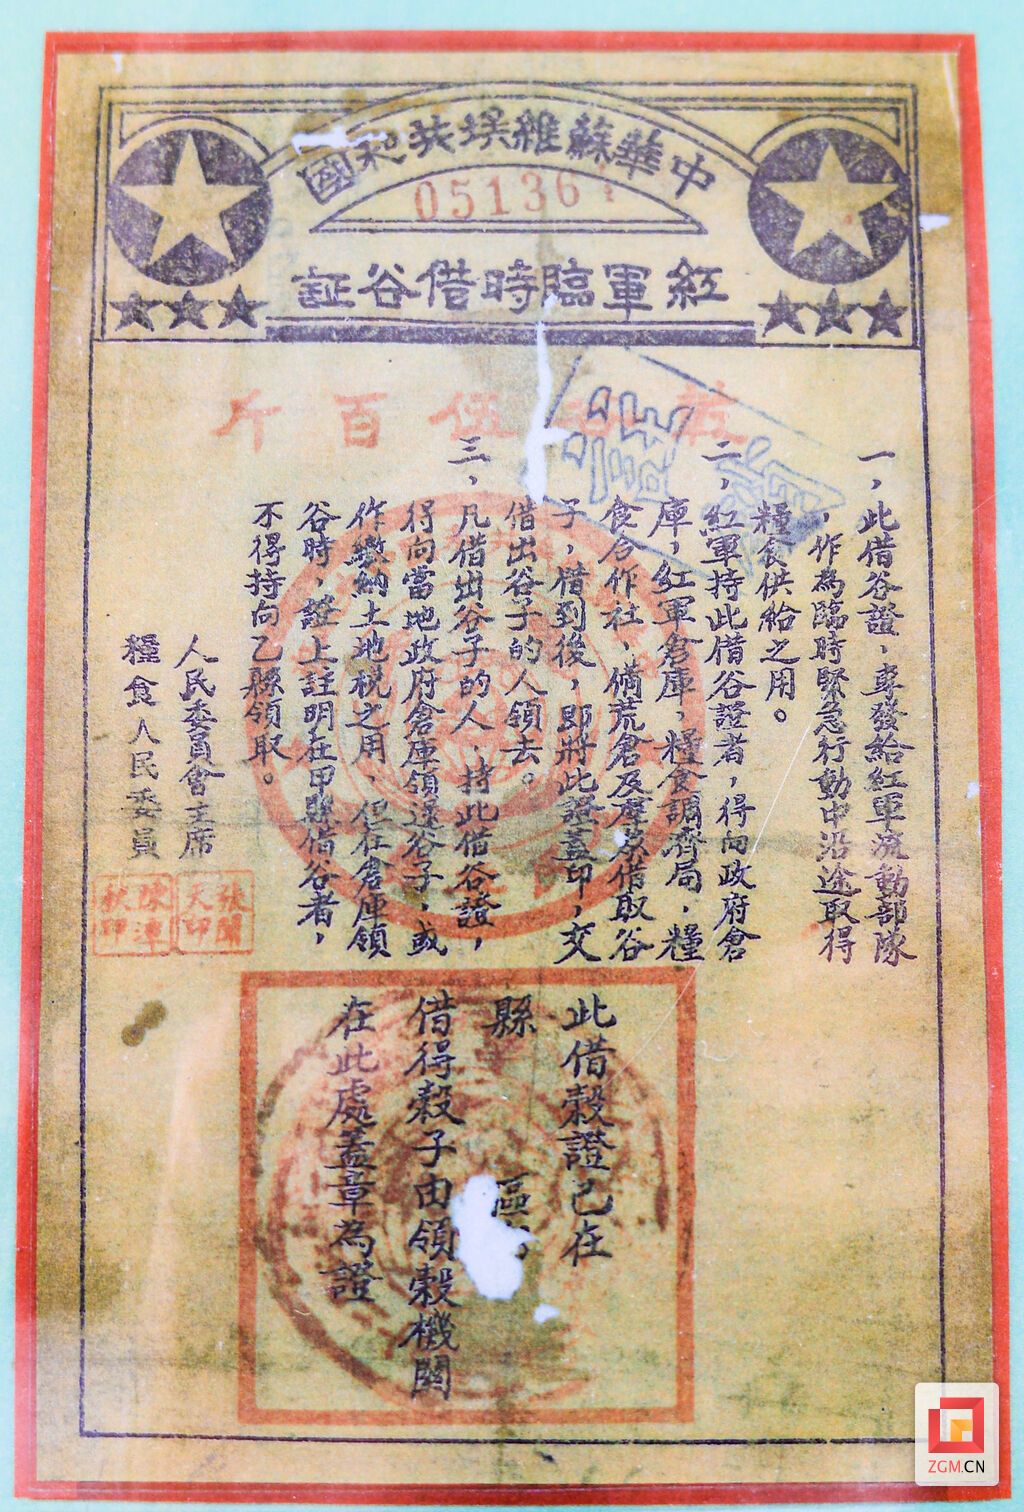 中華蘇維埃共和國
051364
紅軍臨時借谷証
乾谷伍百斤
一，此借谷證，專發給紅軍流動部隊
，作為臨時緊急行動中沿途取得
糧食供給之用。
二，紅軍持此借谷證者，得向政府倉
庫，紅軍倉庫，糧食調濟局，糧
食合作社，備荒倉及羣眾借取谷
子，借到後，即將此證蓋印，交
借出谷子的人領去。
三，凡借出谷子的人，持此借谷證，
得向當地政府倉庫領還谷子，或
作繳納土地稅之用，但在倉庫領
谷時，證上註明在甲縣借谷者，
不得持向乙縣領取。
人民委員會主席
糧食人民委員
張聞天印
陳潭秋印
此借穀證已在
縣 區
借得穀子由領穀機關
在此處蓋章為證
ZGM.CN